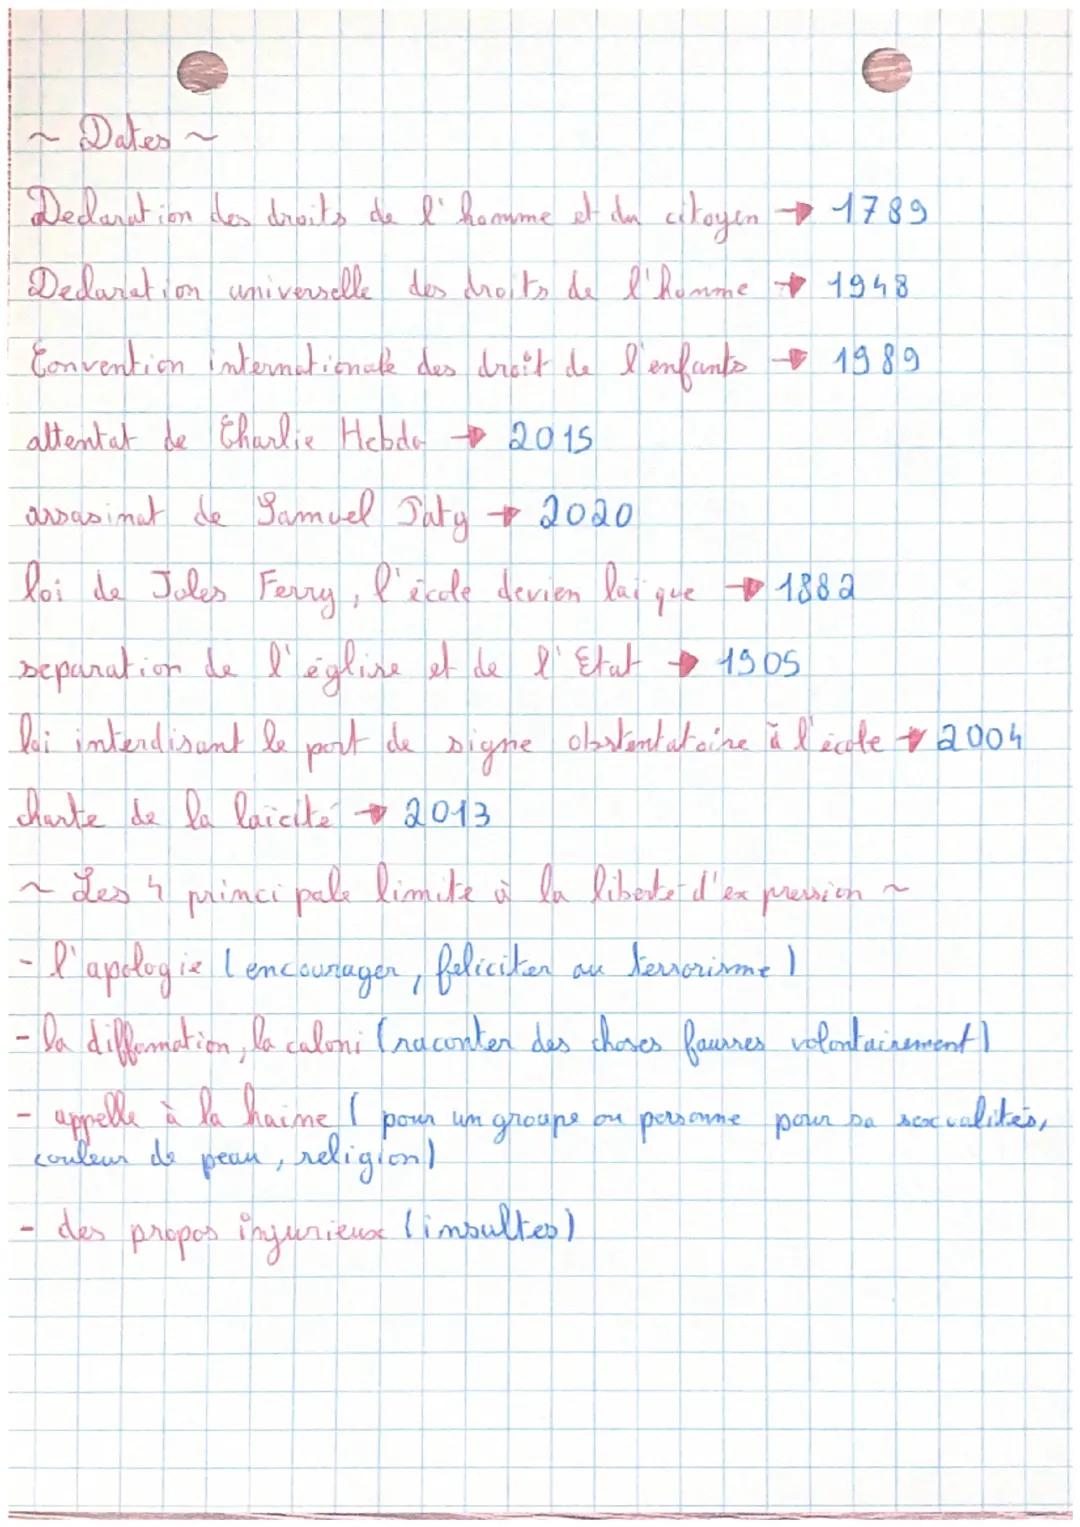 ~ Dates ~
Declaration des droits de l'homme et du citoyen → 1789
Declaration universelle des droits de l'homme → 1948
Convention internationale des droit de l'enfants → 1989
attentat de Charlie Hebdo → 2015
assasinat de Samuel Paty → 2020
loi de Jules Ferry, l'école devien laïque → 1882
separation de l'église et de l'Etat → 1905
loi interdisant le port de signe obstentatoire à l'école → 2004
charte de la laïcité → 2013
~ Les 4 principale limite à la liberte d'expression ~
- l'apologie (encourager, feliciter au terrorisme)
- la diffamation, la caloni (raconter des choses fausses volontairement)
- appelle à la haine (pour un groupe ou personne pour sa sexualités,
couleur de peau, religion)
- des propos injurieux (insultes)